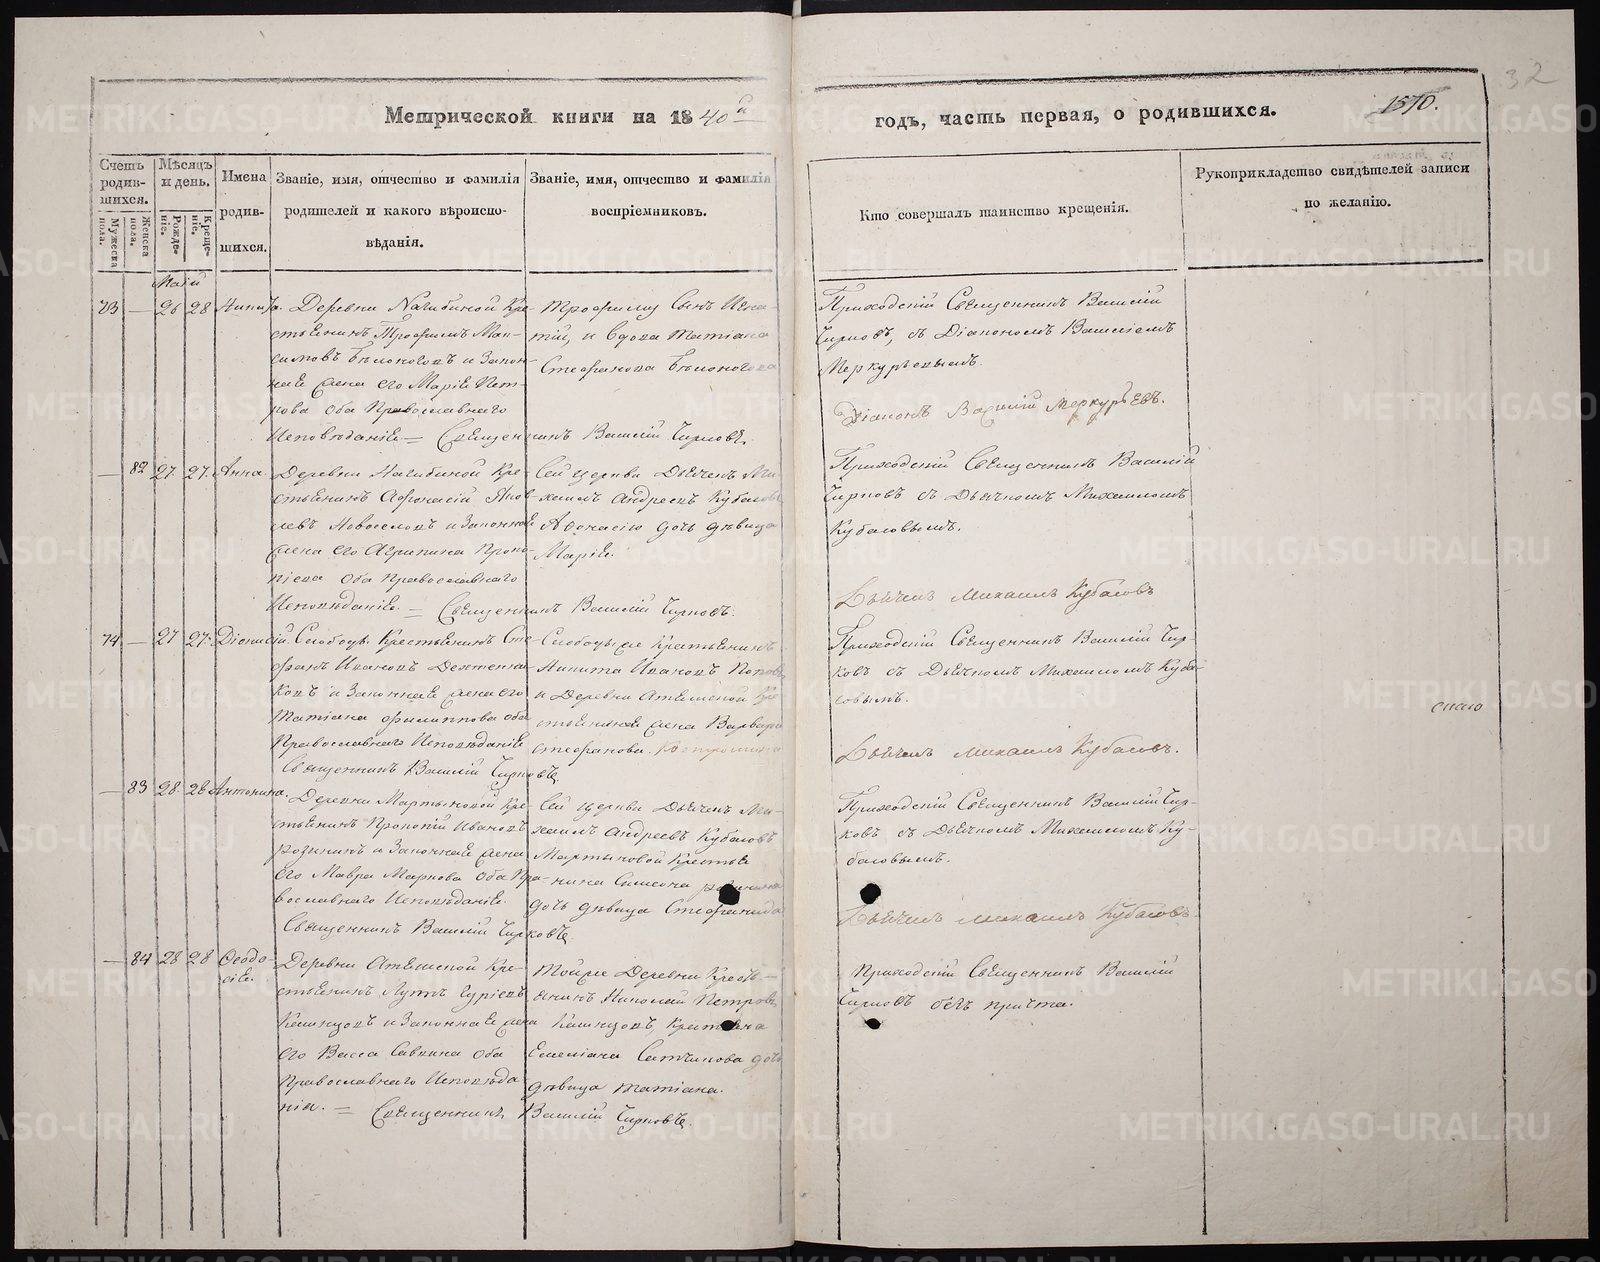 Метрической книги на 1840й
годъ, часть первая, о родившихся.
1570.
32
Счетъ родив-шихся.
Мужеска пола.
Женска пола.
Мѣсяцъ и день.
Рожде-ніе.
Креще-ніе.
Имена
родив-
шихся.
Званіе, имя, отчество и фамилія
родителей и какого вѣроиспо-
вѣданія.
Званіе, имя, отчество и фамилія
воспріемниковъ.
Кто совершалъ таинство крещенія.
Рукоприкладство свидѣтелей записи
по желанію.
Маій
73 — 26 28 Никита.
Деревни Нагибиной Кре-
стьянинъ Трофимъ Мак-
симовъ Бѣлоноговъ и Закон-
ная жена его Марія Пет-
рова оба Православнаго
Исповѣданія = Священникъ Василій Чирковъ.
Трофиму сынъ Игна-
тій, и вдова Татіана
Стефанова Бѣлоногова
Приходскій Священникъ Василій
Чирковъ, съ Діакономъ Василіемъ
Меркурьевымъ.
Діаконъ Василій Меркурьевъ.
— 82 27 27 Анна
Деревни Нагибиной Кре-
стьянинъ Афонасій Яков-
левъ Новоселовъ и Законная
жена его Агрипина Проко-
піева оба Православнаго
Исповѣданія. = Священникъ Василій Чирковъ.
Сей церкви Дьячекъ Ми-
хаилъ Андреевъ Кубасовъ
Афонасію дочь дѣвица
Марія.
Приходскій Священникъ Василій
Чирковъ съ Дьячкомъ Михаиломъ
Кубасовымъ.
Дьячекъ Михаилъ Кубасовъ
74 — 27 27 Діонисій.
Слободы Крестьянинъ Сте-
фанъ Ивановъ
ковъ и Законная жена его
Татіана Филиппова оба
Православнаго Исповѣданія
Священникъ Василій Чирковъ
Слободы же Крестьянинъ
Никита Ивановъ Поповъ
и Деревни Ательской Кре-
стьянская жена Варвара
Стефанова.
Приходскій Священникъ Василій Чир-
ковъ съ Дьячкомъ Михаиломъ Куба-
совымъ.
Дьячекъ Михаилъ Кубасовъ.
— 83 28 28 Антонина.
Деревни Мартыновой Кре-
стьянинъ Прокопій Ивановъ
и Законная жена
его Мавра Маркова оба Пра-
вославнаго Исповѣданія.
Священникъ Василій Чирковъ
Сей церкви Дьячекъ Ми-
хаилъ Андреевъ Кубасовъ
Мартыновой Крестья-
нина Симеона
дочь дѣвица Стефанида
Приходскій Священникъ Василій Чир-
ковъ съ Дьячкомъ Михаиломъ Ку-
басовымъ.
Дьячекъ Михаилъ Кубасовъ
— 84 28 28 Феодо-
сія.
Деревни Ательской Кре-
стьянинъ Гурьевъ
Кашицовъ и Законная жена
его Васса Савина оба
Православнаго Исповѣда-
нія. = Священникъ Василій Чирковъ.
Тойже Деревни Кресть-
янинъ Николай Петровъ
Кашицовъ, Крестьянина
Емеліана дочь
дѣвица Татіана.
Приходскій Священникъ Василій
Чирковъ безъ причта.